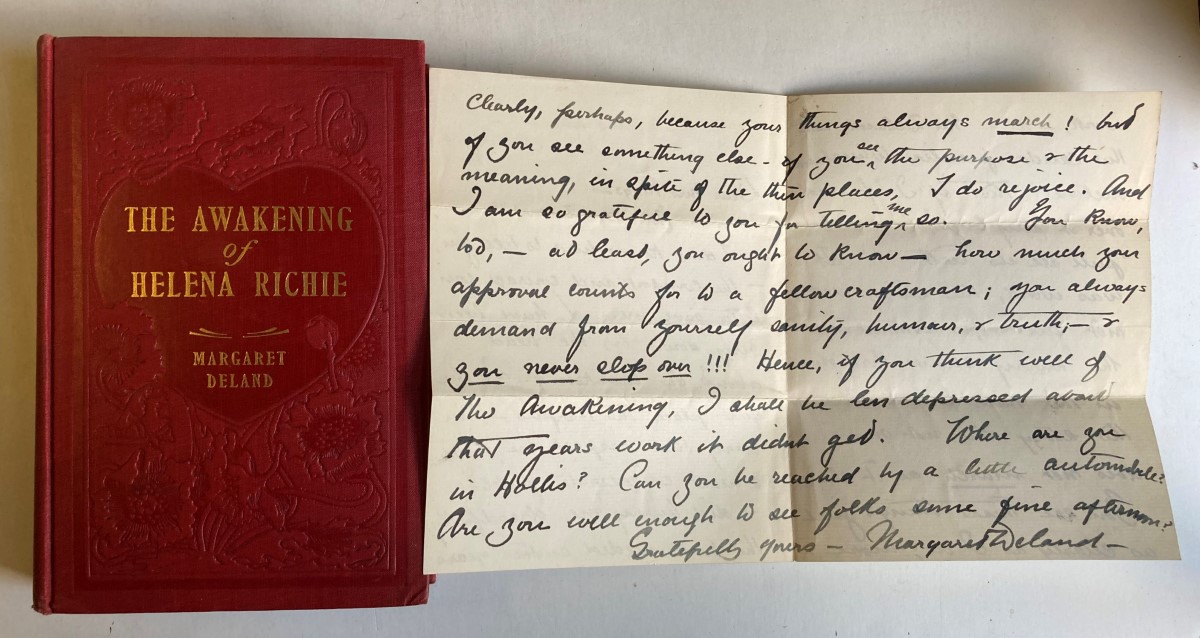 THE AWAKENING
of
HELENA RICHIE
MARGARET
DELAND
Clearly, perhaps, because your things always march! but
if you see something else - if you see the purpose & the
meaning, in spite of the thin places, I do rejoice. And
I am so grateful to you for telling me so. You know,
too, — at least, you ought to know — how much your
approval counts for to a fellow craftsman; you always
demand from yourself sanity, humour, & truth; — &
you never slop over!!! Hence, if you think well of
The Awakening, I shall be less depressed about
that years work it didnt get. Where are you
in Hollis? Can you be reached by a little automobile?
Are you well enough to see folks some fine afternoon?
Gratefully yours — Margaret Deland —